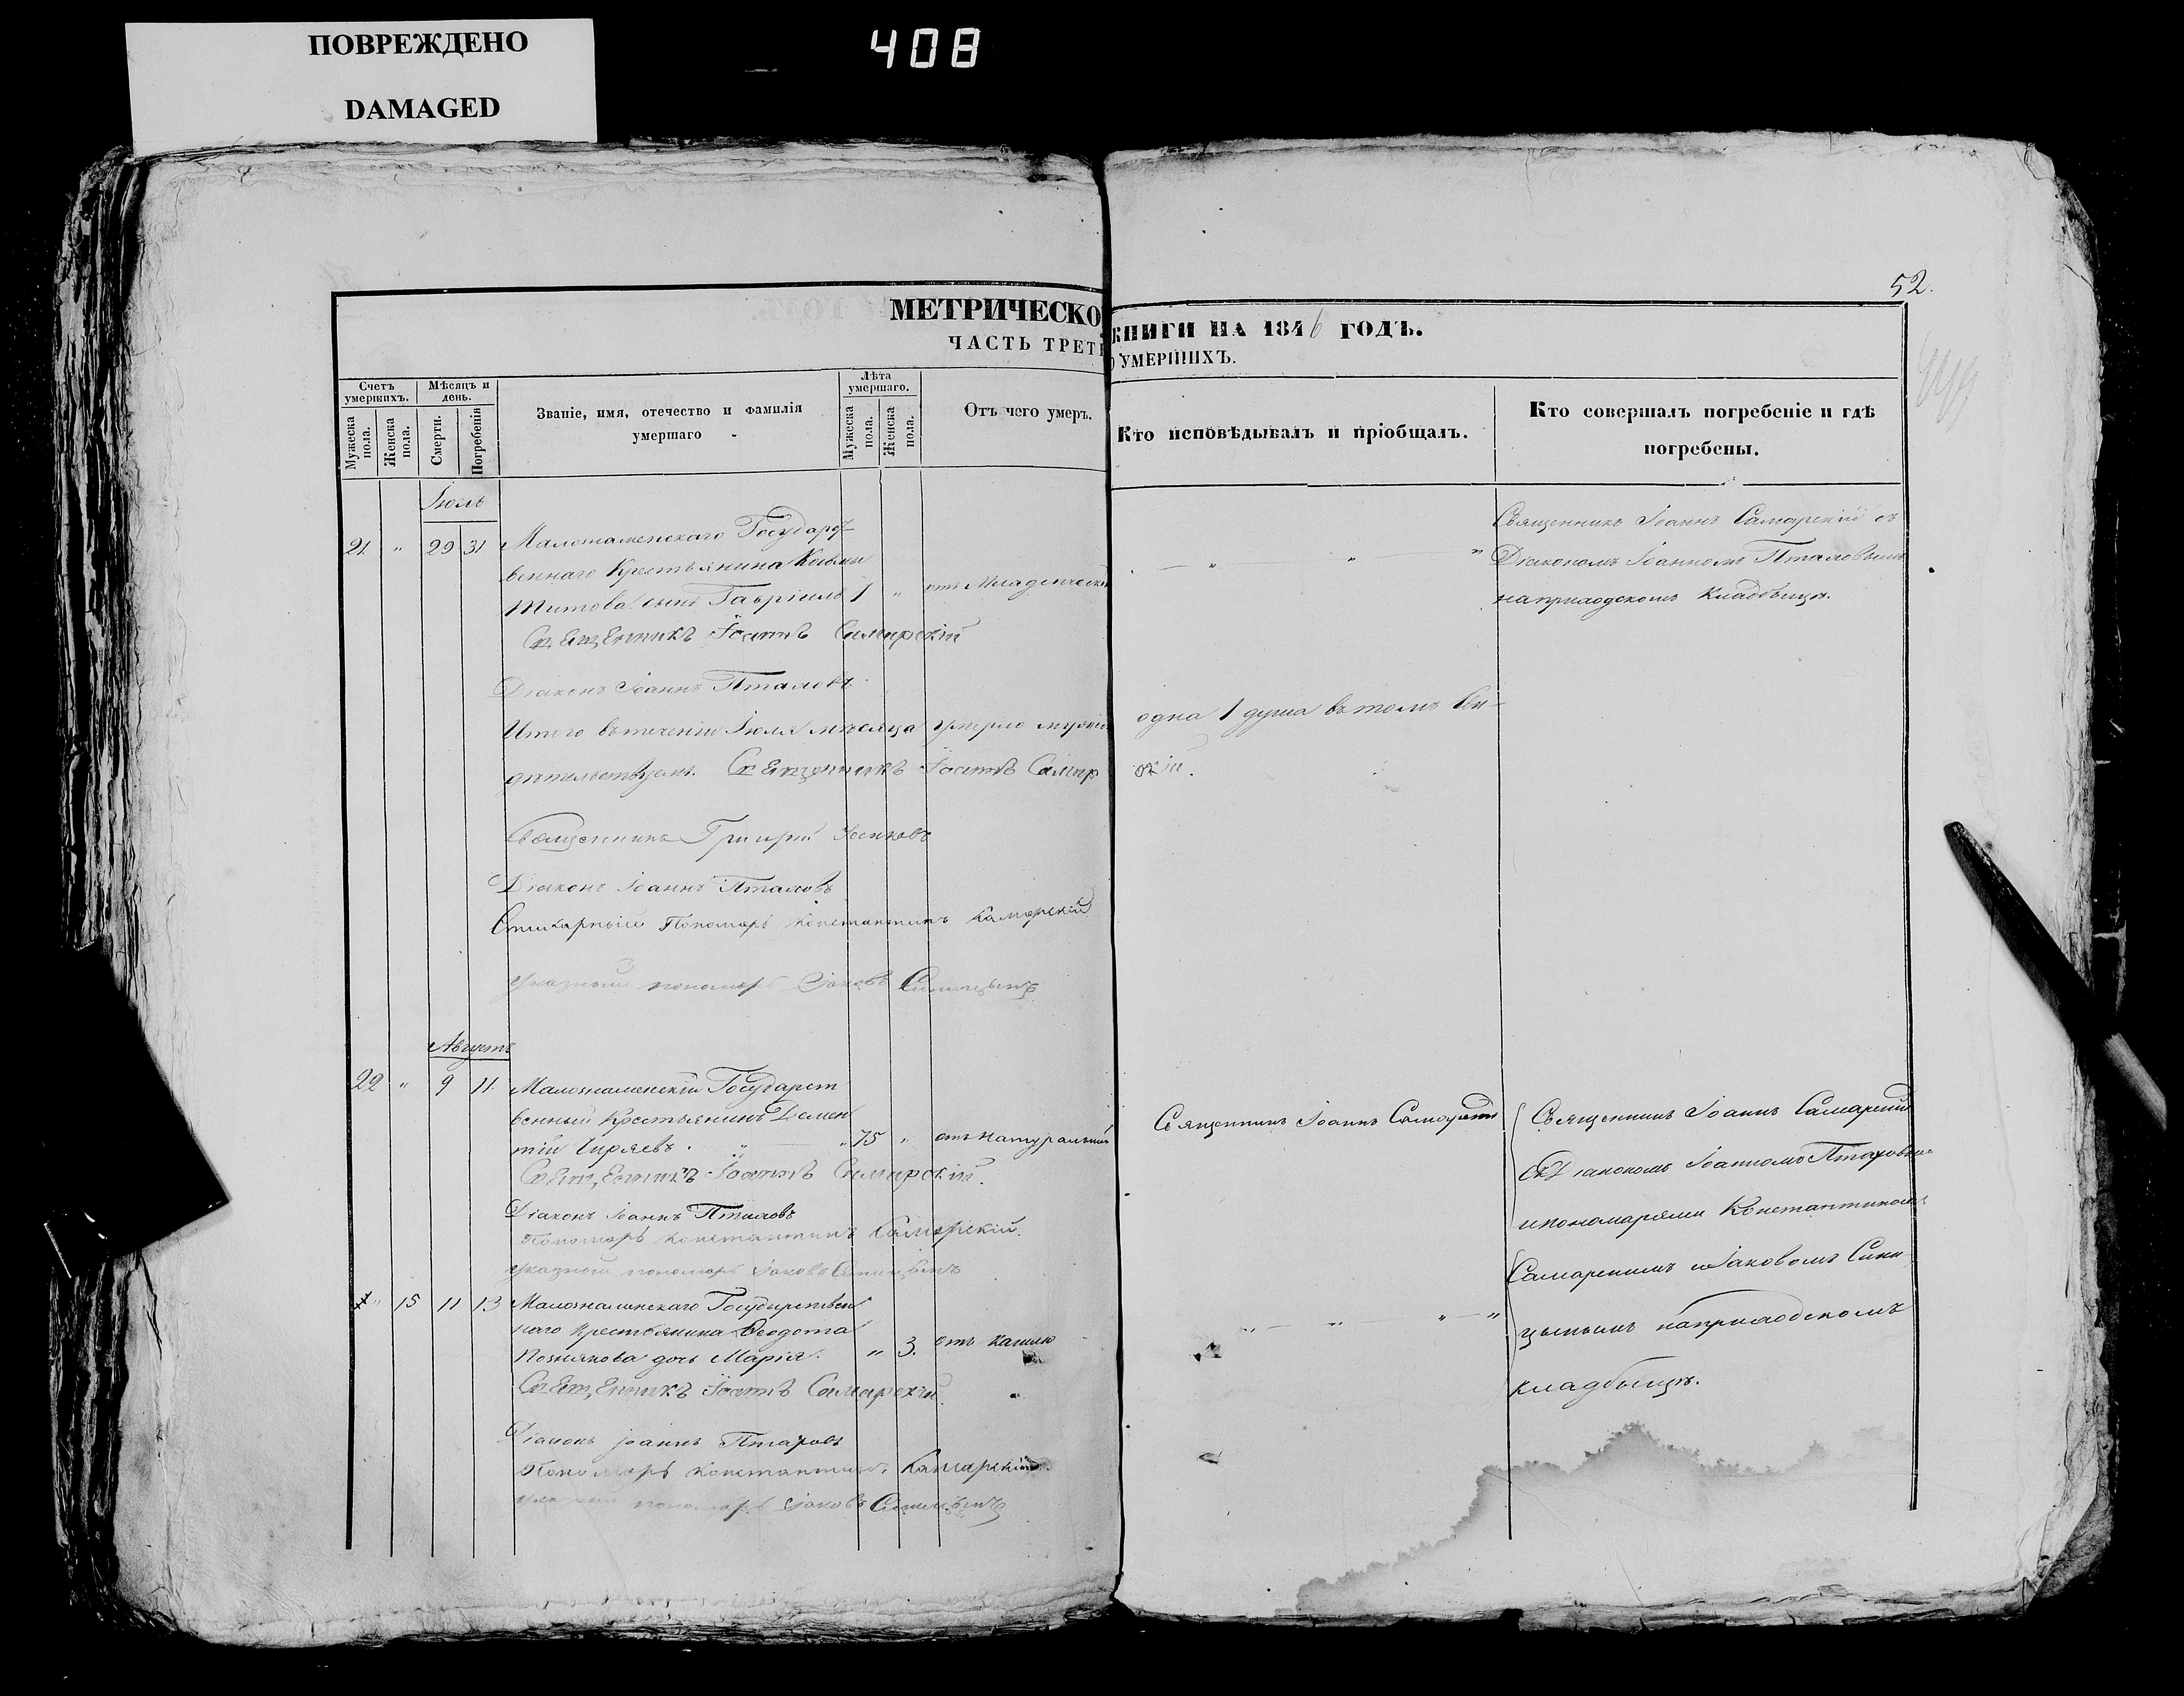 ПОВРЕЖДЕНО
DAMAGED
408
52.
МЕТРИЧЕСКО КНИГИ НА 1846 ГОДЪ.
ЧАСТЬ ТРЕТЬ О УМЕРШИХЪ.
Счетъ умершихъ.
Мужеска пола.
Женска пола.
Мѣсяцъ и день.
Смерти.
Погребенія
Званіе, имя, отечество и фамилія умершаго
Лѣта умершаго.
Мужеска пола.
Женска пола.
Отъ чего умеръ.
Кто исповѣдывалъ и пріобщалъ.
Кто совершалъ погребеніе и гдѣ погребены.
Іюль
21. " 29 31 Малознаменскаго Государст
веннаго Крестьянина
Титова сынъ Гавріилъ 1 " отъ Младенческ
Священникъ Іоаннъ Самарскій съ
Діакономъ Іоанномъ Птаховымъ
на приходскомъ Кладбищѣ.
Священникъ Іоаннъ Самарскій
Діаконъ Іоаннъ Птаховъ
Итого въ теченіи Іюля мѣсяца умерло одна 1 душа въ томъ Сви-
дѣтельствуемъ. Священникъ Іоаннъ Самар скій.
Священникъ Григорій
Діаконъ Іоаннъ Птаховъ
Стихарный Пономарь Константинъ Самарскій
Указный пономарь Іаковъ Синицынъ
Августъ
22 " 9 11. Малознаменскій Государст
венный Крестьянинъ Демен
тій Чиряевъ. " " 75 " отъ натуральной
Священникъ Іоаннъ Самарскій
Священникъ Іоаннъ Самарскій
съ Діакономъ Іоанномъ Птаховымъ
и пономарями Константиномъ
Самарскимъ и Іаковомъ Сини
цынымъ на приходскомъ
кладбищѣ.
Священникъ Іоаннъ Самарскій.
Діаконъ Іоаннъ Птаховъ
Пономарь Константинъ Самарскій.
Указный пономарь Іаковъ Синицынъ
" 15 11 13 Малознаменскаго Государствен
наго Крестьянина Ѳеодота
Познякова дочь Марія. " 3. отъ кашлю
Священникъ Іоаннъ Самарскій.
Діаконъ Іоаннъ Птаховъ
Пономарь Константинъ Самарскій
Указный пономарь Іаковъ Синицынъ